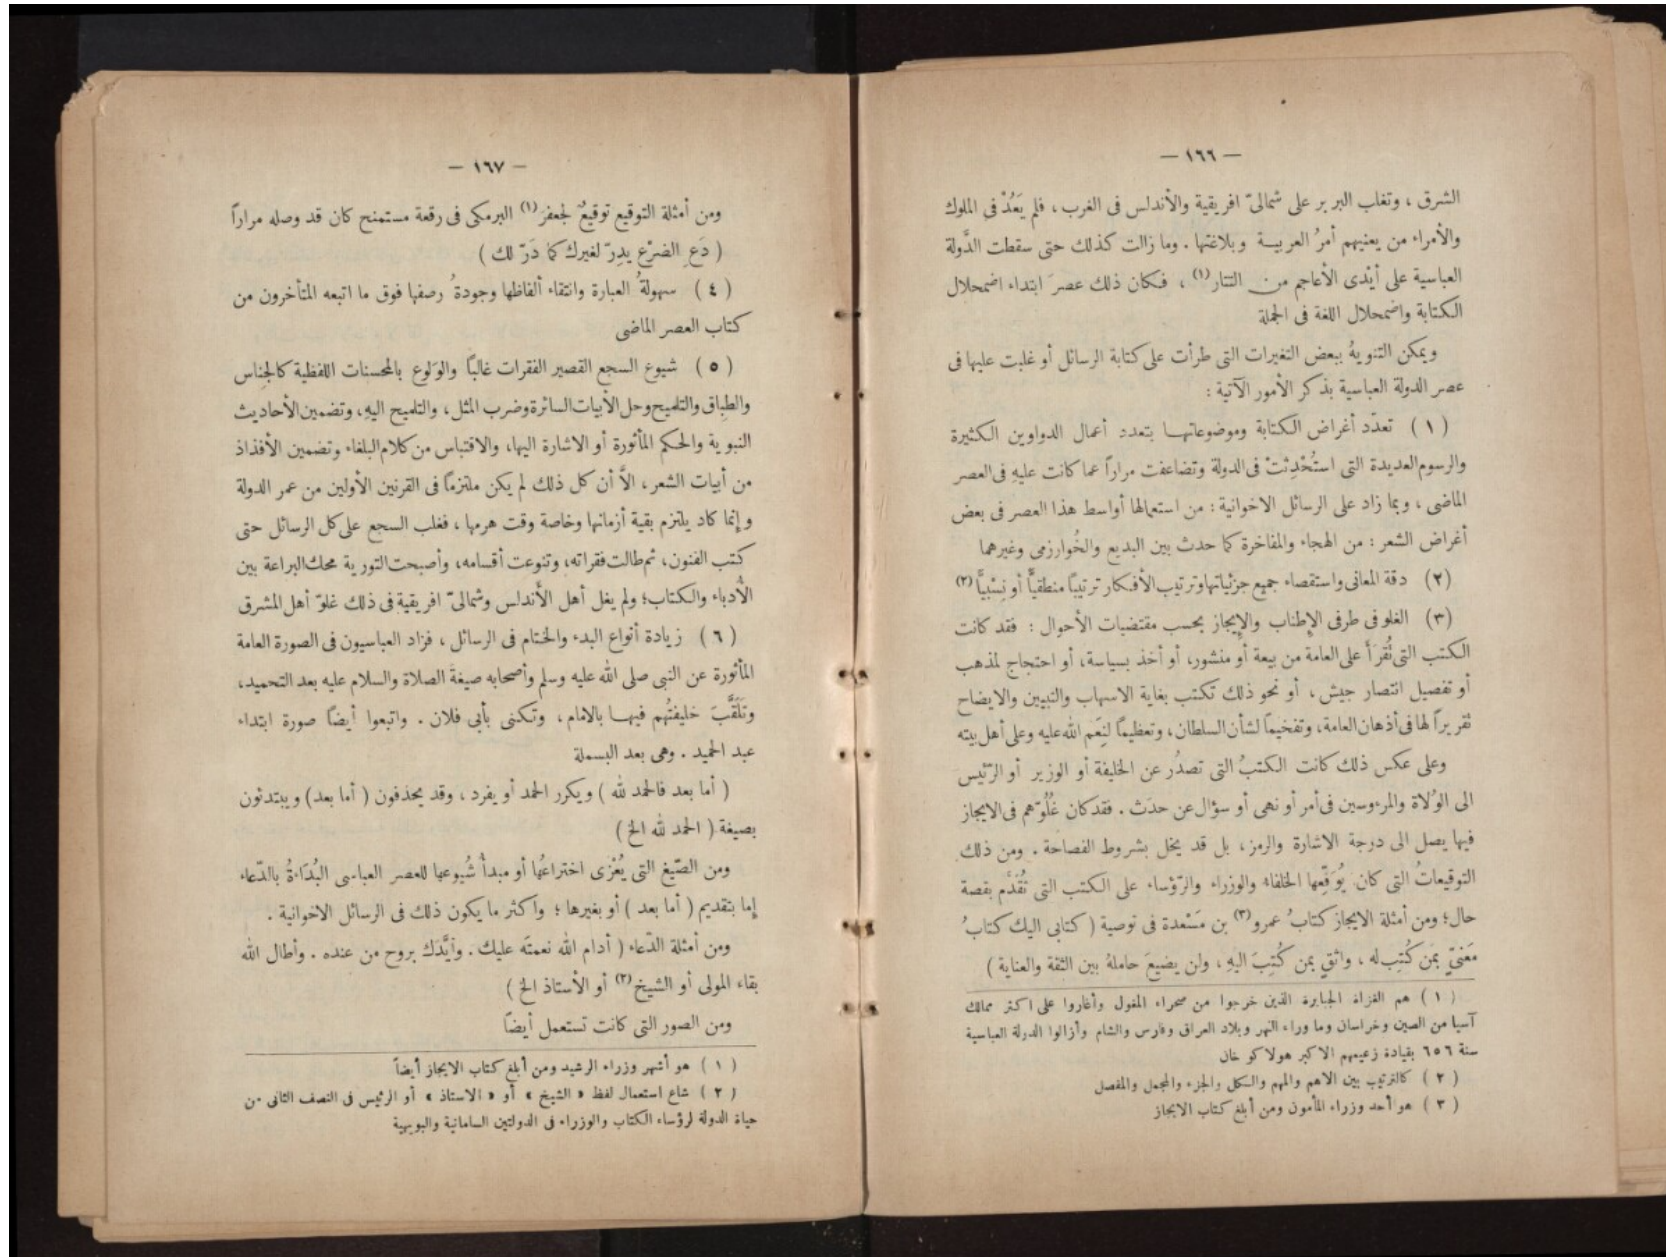 — ١٦٦ —
الشرق ، وتغلب البربر على شمالىّ افريقية والأندلس فى الغرب ، فلم يَعُدْ فى الملوك
والأمراء من يعنيهم أمرُ العربيـة وبلاغتها . وما زالت كذلك حتى سقطت الدَّولة
العباسية على أيْدى الأعاجم من التتار (١) ، فكان ذلك عصرَ ابتداء اضمحلال
الكتابة واضمحلال اللغة فى الجملة
ويمكن التنويهُ ببعض التغيرات التى طرأت على كتابة الرسائل أو غلبت عليها فى
عصر الدولة العباسية بذكر الأمور الآتية :
( ١ ) تعدّد أغراض الكتابة وموضوعاتهـا بتعدد أعمال الدواوين الكثيرة
والرسوم العديدة التى استُحْدِثتْ فى الدولة وتضاعفت مراراً عما كانت عليهِ فى العصر
الماضى ، وبما زاد على الرسائل الاخوانية : من استعمالها أواسط هذا العصر فى بعض
أغراض الشعر : من الهجاء والمفاخرة كما حدث بين البديع والخُوارزمى وغيرهما
(٢) دقة المعانى واستقصاء جميع جزئياتها وترتيب الأفكار ترتيبًا منطقيًّا أو نِسْبيًّا (٢)
(٣) الغلو فى طرفى الإِطناب والإِيجاز بحسب مقتضيات الأحوال : فقد كانت
الكتب التى تُقرَأ على العامة من بيعة أو منشور، أو أخذ بسياسة، أو احتجاج لمذهب
أو تفصيل انتصار جيش ، أو نحو ذلك تكتب بغاية الاسهاب والتبيين والايضاح
تقريراً لها فى أذهان العامة، وتفخيمًا لشأن السلطان، وتعظيمًا لنِعَم الله عليه وعلى أهل بيته
وعلى عكس ذلك كانت الكتبُ التى تصدُر عن الخليفة أو الوزير أو الرّئيس
الى الوُلاة والمرءوسين فى أمر أو نهى أو سؤال عن حدَث . فقد كان غُلُوّهم فى الايجاز
فيها يصل الى درجة الاشارة والرمز، بل قد يخل بشروط الفصاحة . ومن ذلك
التوقيعاتُ التى كان يُوَقّعها الخلفاء والوزراء والرّؤساء على الكتب التى تُقَدَّم بقصة
حال؛ ومن أمثلة الايجاز كتابُ عمرو (٣) بن مَسْعدة فى توصية ( كتابى اليك كتابُ
مَعْنىٍّ بمَن كُتِب له ، واثقٍ بمن كُتِبَ اليهِ ، ولن يضيعَ حاملهُ بين الثقة والعناية )
( ١ ) هم الغزاة الجبابرة الذين خرجوا من صحراء المغول وأغاروا على اكثر ممالك
آسيا من الصين وخراسان وما وراء النهر وبلاد العراق وفارس والشام وأزالوا الدولة العباسية
سنة ٦٥٦ بقيادة زعيمهم الاكبر هولاكو خان
( ٢ ) كالترتيب بين الاهم والمهم والكل والجزء والمجمل والمفصل
( ٣ ) هو أحد وزراء المأمون ومن أبلغ كتاب الايجاز
— ١٦٧ —
ومن أمثلة التوقيع توقيعٌ لجعفرَ (١) البرمكى فى رقعة مستمنح كان قد وصله مراراً
( دَع الضرْع يدِرّ لغيرك كما دَرّ لك )
( ٤ ) سهولةُ العبارة وانتقاء ألفاظها وجودةُ رصفها فوق ما اتبعه المتأخرون من
كتاب العصر الماضى
( ٥ ) شيوع السجع القصير الفقرات غالبًا والوَلوع بالمحسنات اللفظية كالجِناس
والطِباق والتلميح وحل الأبيات السائرة وضرب المثل ، والتلميح اليهِ، وتضمين الأحاديث
النبوية والحكم المأثورة أو الاشارة اليها، والاقتباس من كلام البلغاء وتضمين الأفذاذ
من أبيات الشعر ، الاَّ أن كل ذلك لم يكن ملتزمًا فى القرنين الأولين من عمر الدولة
وإنما كاد يلتزم بقية أزمانها وخاصة وقت هرمها ، فغلب السجع على كل الرسائل حتى
كتب الفنون، ثم طالت فقراته، وتنوعت أقسامه، وأصبحت التورية محك البراعة بين
الأدباء والكتاب؛ ولم يغل أهل الأندلس وشمالىّ افريقية فى ذلك غلوّ أهل المشرق
( ٦ ) زيادة أنواع البدء والختام فى الرسائل ، فزاد العباسيون فى الصورة العامة
المأثورة عن النبى صلى الله عليه وسلم وأصحابه صيغةَ الصلاة والسلام عليه بعد التحميد،
وتَلَقَّبَ خليفتُهم فيهـا بالامام، وتكنى بأبى فلان . واتبعوا أيضًا صورة ابتداء
عبد الحميد . وهى بعد البسملة
( أما بعد فالحمد لله ) ويكرر الحمد أو يفرد ، وقد يحذفون ( أما بعد ) ويبتدئون
بصيغة ( الحمد لله الخ )
ومن الصّيغ التى يُعْزى اختراعُها أو مبدأ شُيوعها للعصر العباسى البُدَاءةُ بالدّعاء
إما بتقديم ( أما بعد ) أو بغيرها ؛ واكثر ما يكون ذلك فى الرسائل الاخوانية .
ومن أمثلة الدّعاء ( أدام الله نعمتَه عليك . وأيَّدَك بروح من عنده . وأطال الله
بقاء المولى أو الشيخ (٢) أو الأستاذ الخ )
ومن الصور التى كانت تستعمل أيضًا
( ١ ) هو أشهر وزراء الرشيد ومن أبلغ كتاب الايجاز أيضاً
( ٢ ) شاع استعمال لفظ « الشيخ » أو « الاستاذ » أو الرئيس فى النصف الثانى من
حياة الدولة لرؤساء الكتاب والوزراء فى الدولتين السامانية والبويهية